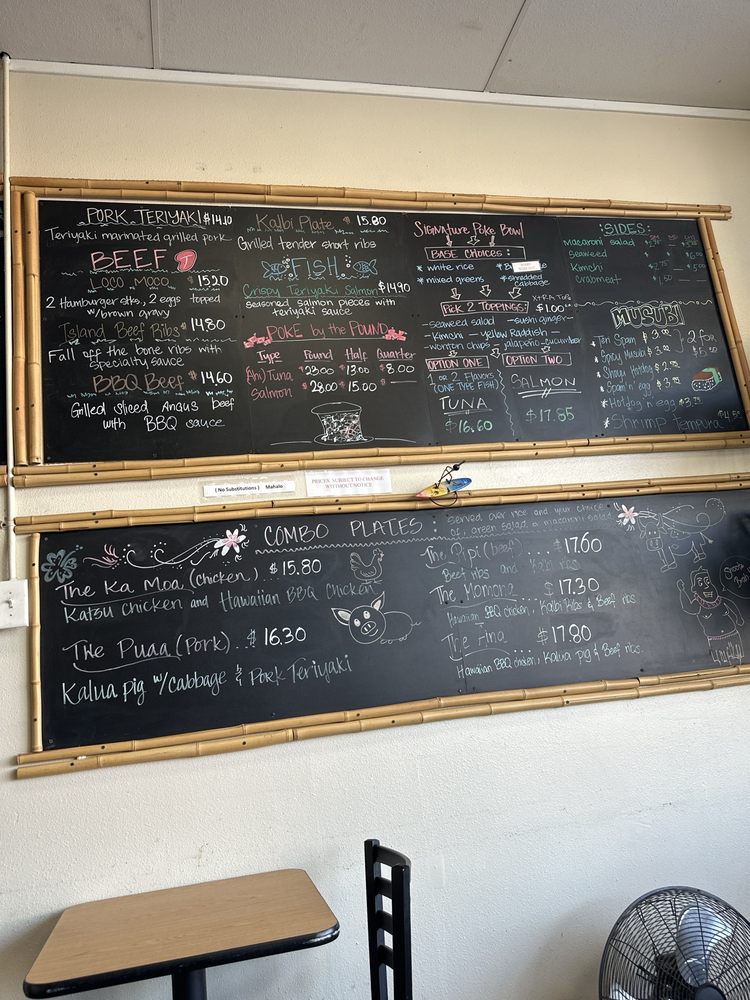 PORK TERIYAKI $14.10
Teriyaki marinated grilled pork
BEEF
LOCO MOCO $15.20
2 Hamburger stks, 2 eggs topped
w/brown gravy
Island Beef Ribs $14.80
Fall off the bone ribs with
specialty sauce
BBQ Beef $14.60
Grilled sliced Angus beef
with BBQ sauce
Kalbi Plate $15.80
Grilled tender short ribs
FISH
Crispy Teriyaki Salmon $14.90
seasoned salmon pieces with
teriyaki sauce
POKE by the POUND
Type Pound Half Quarter
(Ahi) Tuna $23.00 $13.00 $8.00
Salmon $28.00 $15.00 —
Signature Poke Bowl
BASE CHOICES:
* white rice
* mixed greens * shredded cabbage
Pick 2 TOPPINGS: $1.00
- seaweed salad - sushi ginger -
- Kimchi - yellow Raddish -
- wonton chips - jalapeño - cucumber
OPTION ONE
1 or 2 Flavors
(ONE TYPE FISH)
TUNA
$16.60
OPTION TWO
SALMON
$17.85
SIDES:
Macaroni salad
Seaweed
Kimchi
Crabmeat
MUSUBI
* Teri Spam
* Spicy Musubi
* Shoyu Hotdog
* Spam n' egg
* Hotdog n' egg
* Shrimp Tempura
2 for
( No Substitutions ) Mahalo
PRICES SUBJECT TO CHANGE
WITHOUT NOTICE
COMBO PLATES
Served over rice and your choice
of green salad or macaroni salad
The Ka Moa (chicken) . . $15.80
Katsu chicken and Hawaiian BBQ chicken
The Puaa (Pork) . . $16.30
Kalua pig w/cabbage & Pork Teriyaki
The Pipi (beef) . . . $17.60
Beef ribs and Kalbi ribs
The Momona . . . $17.30
Hawaiian BBQ chicken, Kalbi Ribs & Beef ribs
The Aina . . $17.80
Hawaiian BBQ chicken, Kalua pig & Beef ribs.